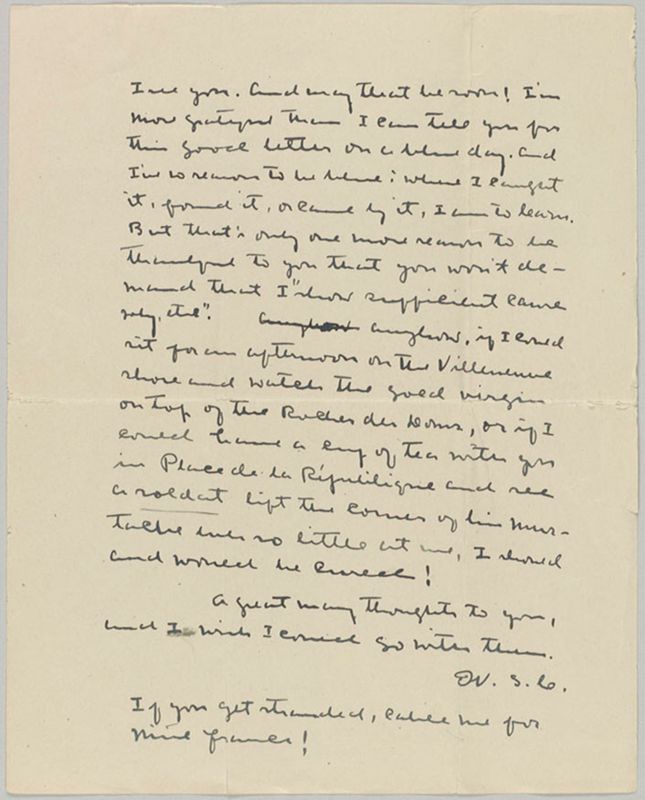 I see you. And may that be soon! I'm
more grateful than I can tell you for
this good letter on a blue day. And
I've no reason to be blue: where I caught
it, found it, or came by it, I am to learn.
But that's only one more reason to be
thankful to you that you won't de-
mand that I "show sufficient cause
why, etc".    anyhow, if I could
sit for an afternoon on the Villeneuve
shore and watch the gold virgin
on top of the Rocher des Doms, or if I
could have a cup of tea with you
in Place de la Républiique and see
a soldat lift the corner of his mus-
tache ever so little at me, I should
and would be cured!
A great many thoughts to you,
and I wish I could go with them.
W. S. C.
If you get stranded, cable me for
mine francs!